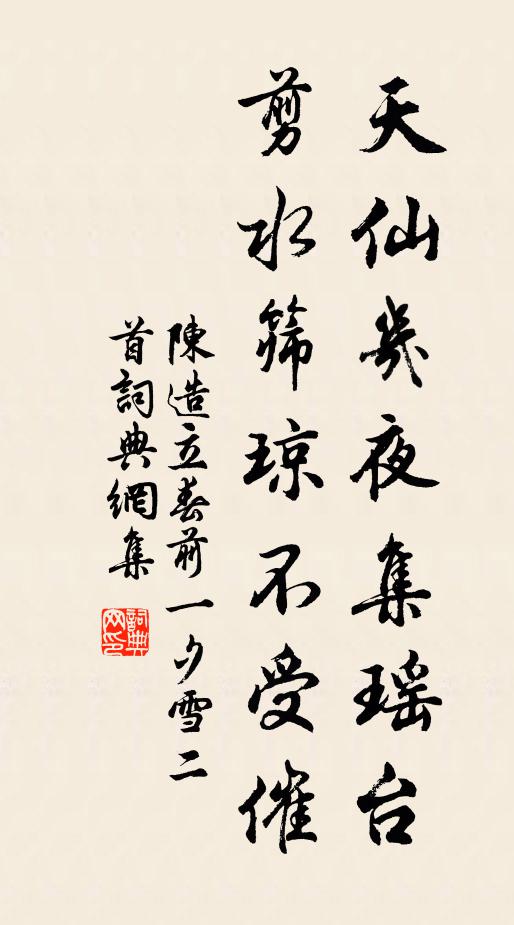 天仙幾夜集瑶台
剪水筛琼不受催
陳造立春前一夕雪二
首詞典網集
詞典网印